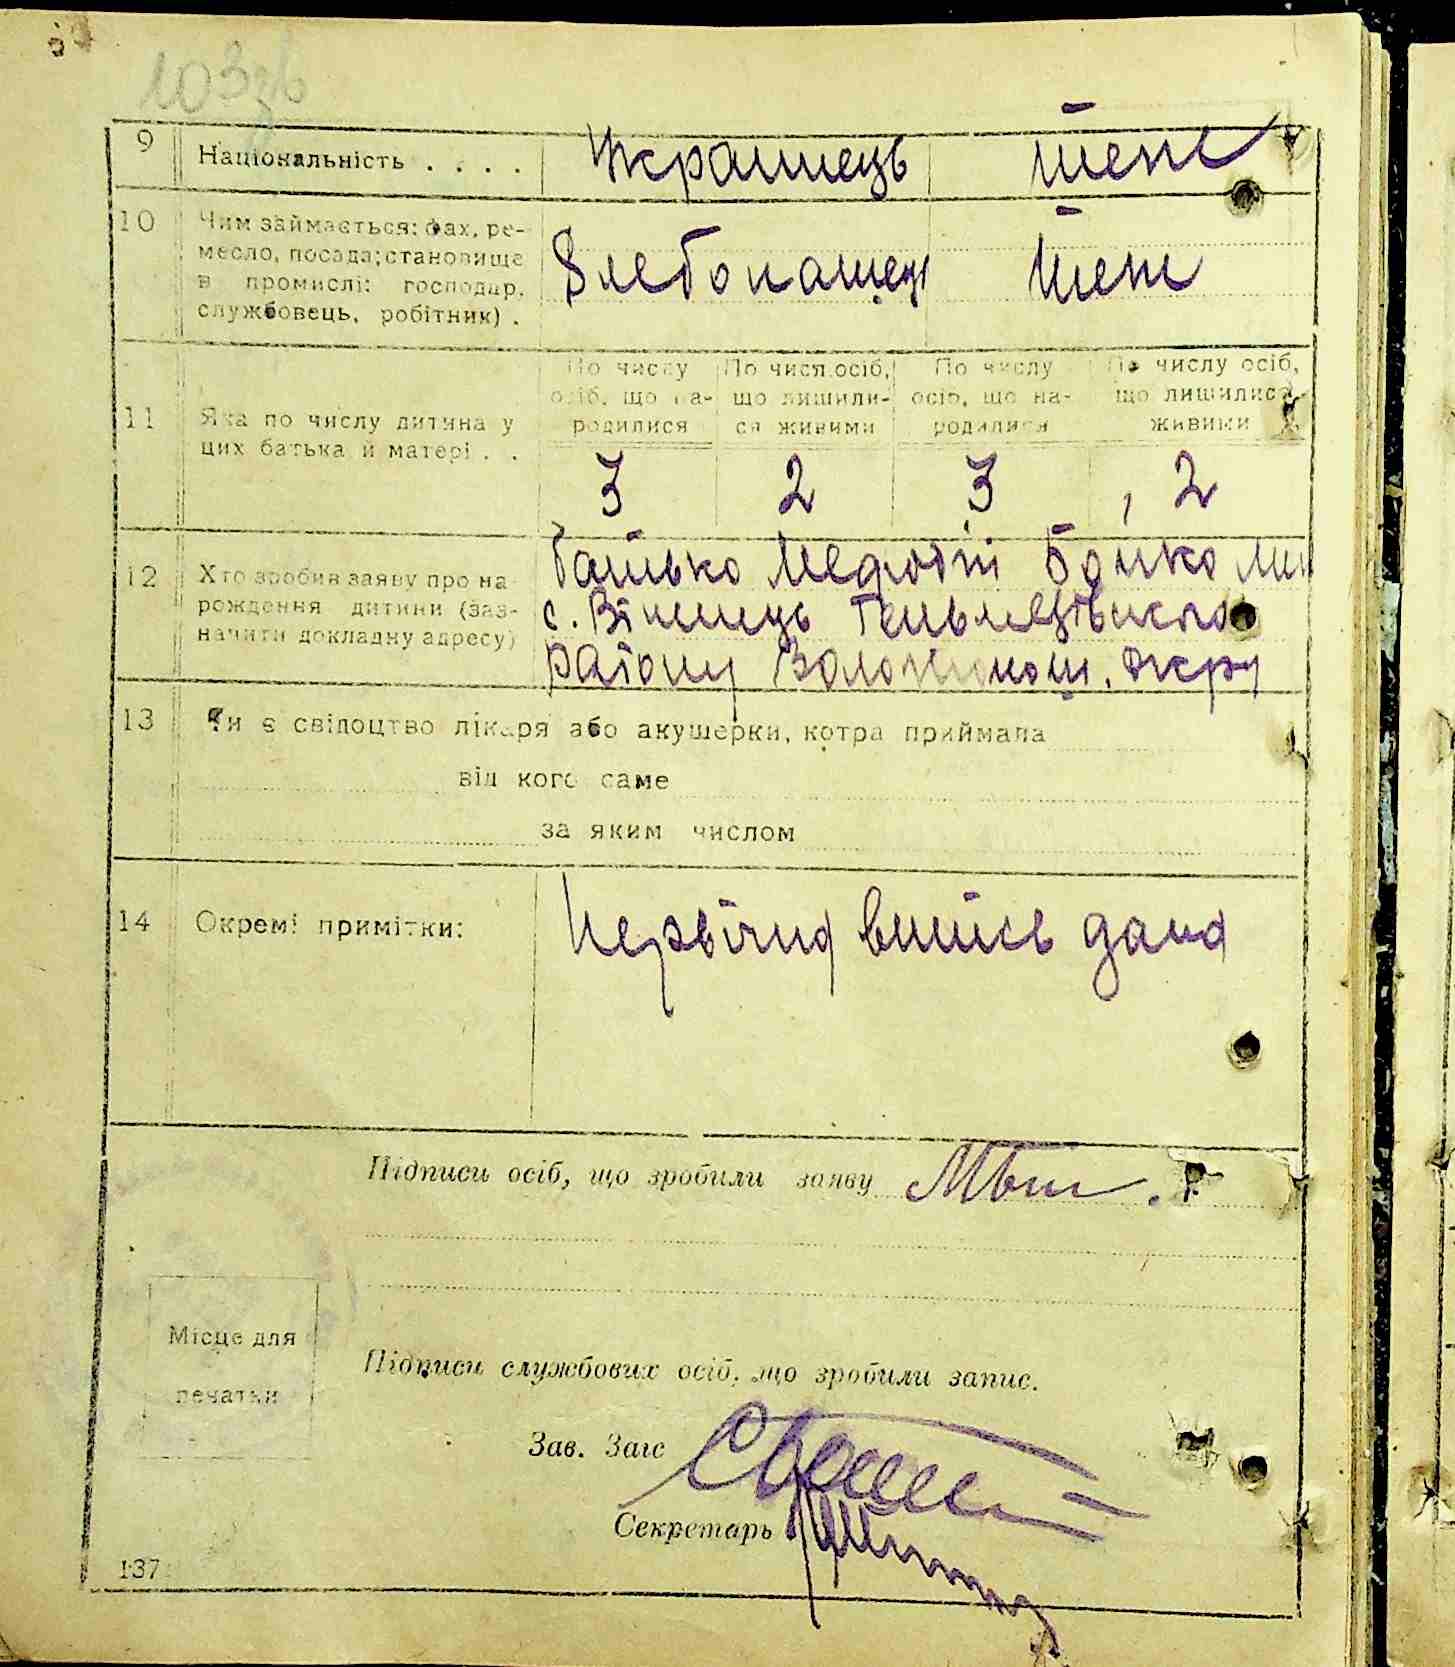 103зв
9 Національність . . . . Українець теж
10 Чим займається: фах, ре-
месло, посада; становище
в промислі: господар,
службовець, робітник) .
Хлебопашец теж
11 Яка по числу дитина у
цих батька й матері . .
По числу осіб, що на-родилися
По числ. осіб, що лишили-ся живими
По числу осіб, що на-родилися
По числу осіб, що лишилися живими
3 2 3 2
12 Хто зробив заяву про на-
рождення дитини (заз-
начити докладну адресу)
батько Мефодій Бойко
с. Вінинець Гельмязівського
Району Золотонош. Окру
13 Чи є свідоцтво лікаря або акушерки, котра приймала
від кого саме
за яким числом
14 Окремі примітки: Первічна випись дана
Підписи осіб, що зробили заяву
Місце для
печатки
Підписи службових осіб, що зробили запис.
Зав. Загс
Секретарь
137